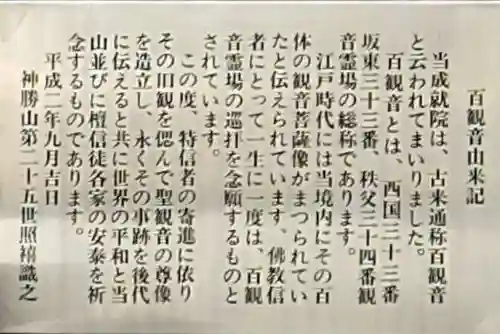 百観音由来記
当成就院は、古来通称百観音
と云われてまいりました。
百観音とは、西国三十三番
坂東三十三番、秩父三十四番観
音霊場の総称であります。
江戸時代には当境内にその百
体の観音菩薩像がまつられてい
たと伝えられています、佛教信
者にとって一生に一度は、百観
音霊場の巡拝を念願するものと
されています。
この度、特信者の寄進に依り
その旧観を偲んで聖観音の尊像
を造立し、永くその事跡を後代
に伝えると共に世界の平和と当
山並びに檀信徒各家の安泰を祈
念するものであります。
平成二年九月吉日
神勝山第二十五世照禧識之